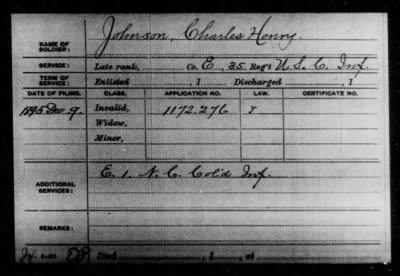 NAME OF SOLDIER: Johnson, Charles Henry.
SERVICE: Late rank, Co. E, 35 Reg't U. S. C. Inf.
TERM OF SERVICE: Enlisted , 1 Discharged , 1
DATE OF FILING. CLASS. APPLICATION NO. LAW. CERTIFICATE NO.
1895 Dec 9. Invalid, 1172.276
Widow,
Minor,
ADDITIONAL SERVICES: E. 1. N. C. Col'd Inf.
REMARKS:
Died , 1 , at